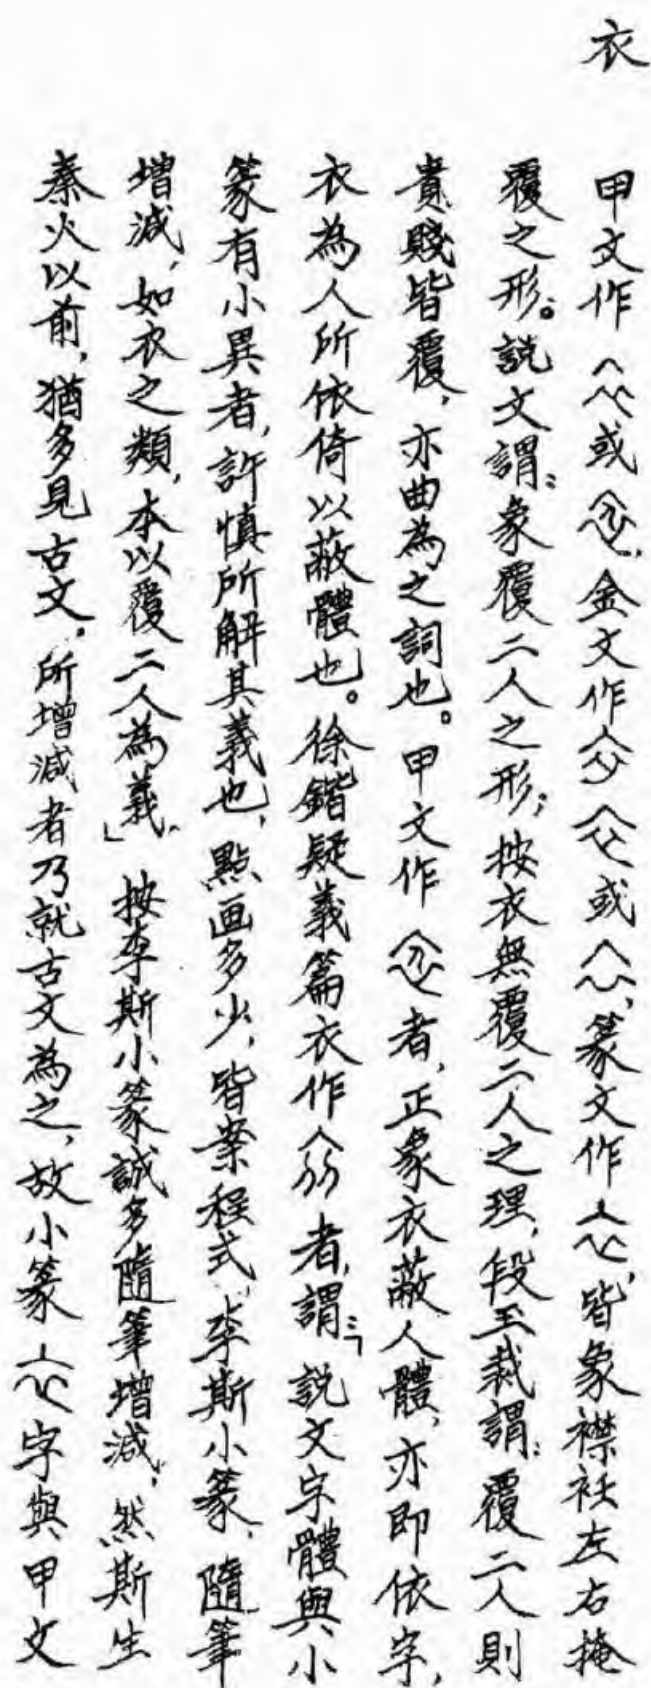 衣
甲文作或,金文作或,篆文作,皆象襟衽左右掩
覆之形。說文謂:象覆二人之形;按衣無覆二人之理,段玉裁謂:覆二人則
貴賤皆覆,亦曲為之詞也。甲文作者,正象衣蔽人體,亦即依字,
衣為人所依倚以蔽體也。徐鍇疑義篇衣作者,謂:「說文字體與小
篆有小異者,許慎所解其義也,點画多少,皆案程式,李斯小篆,隨筆
增減,如衣之類,本以覆二人為義。」按李斯小篆誠多隨筆增減,然斯生
秦火以前,猶多見古文。所增減者乃就古文為之,故小篆字與甲文